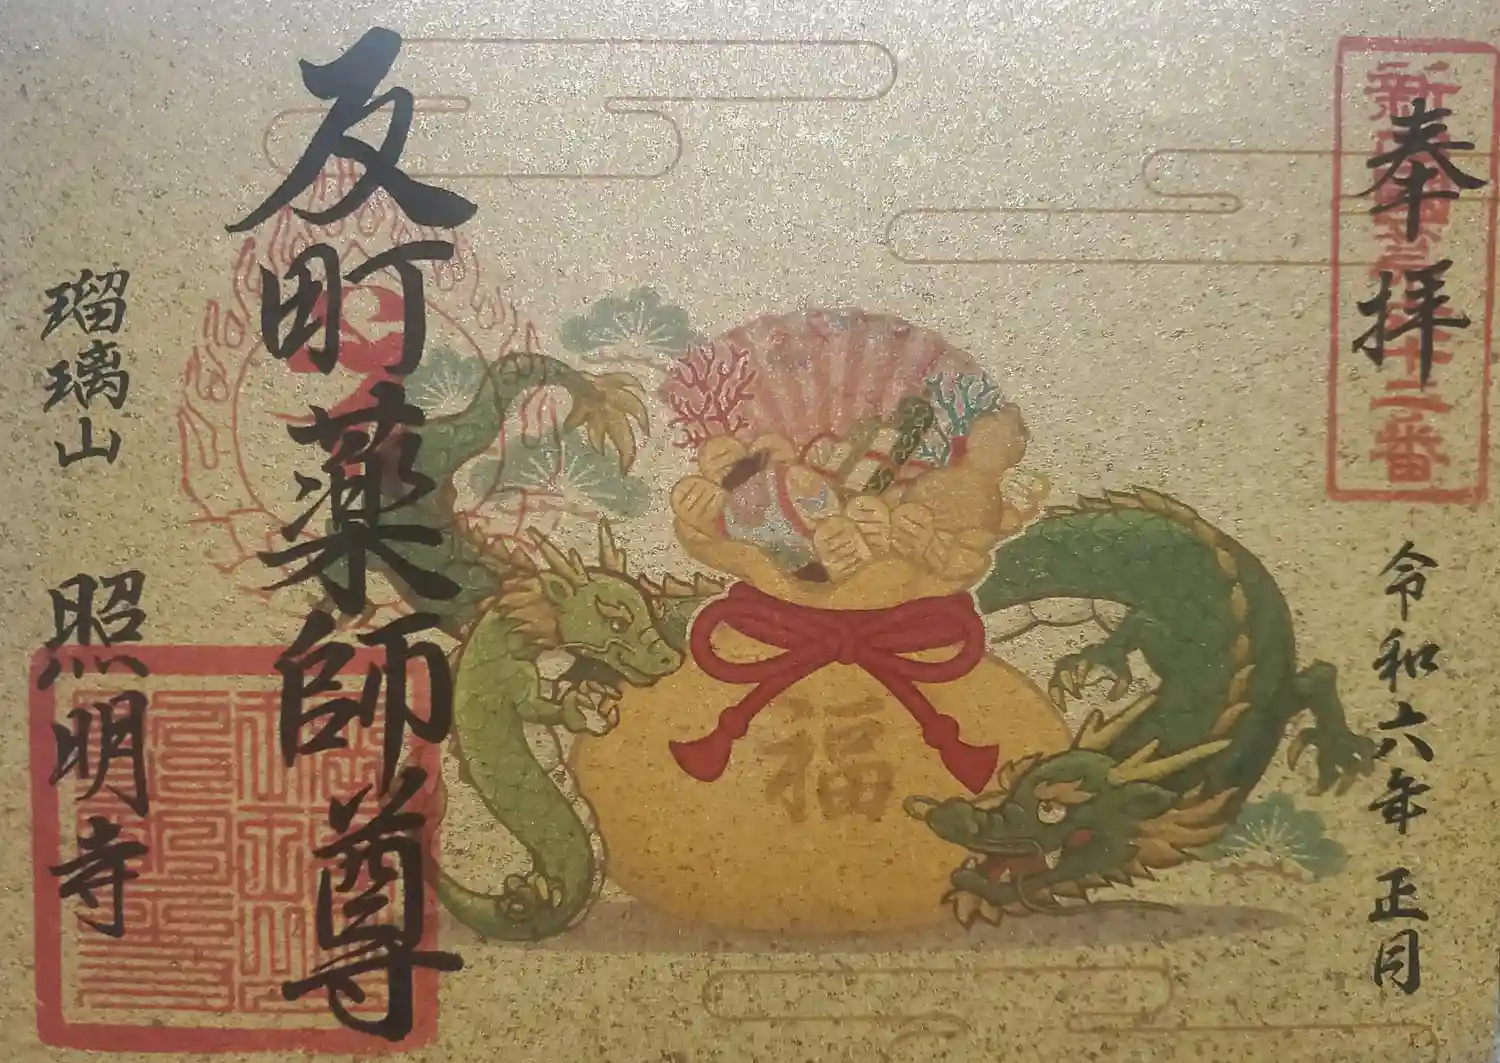 奉拝
令和六年 正月
反町薬師尊
瑠璃山 照明寺
福